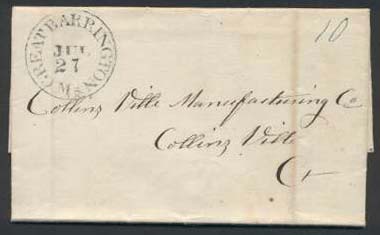 GREAT BARRINGTON
JUL
27
Ms
10
Collins Ville Manufacturing Co
Collins Ville
Ct